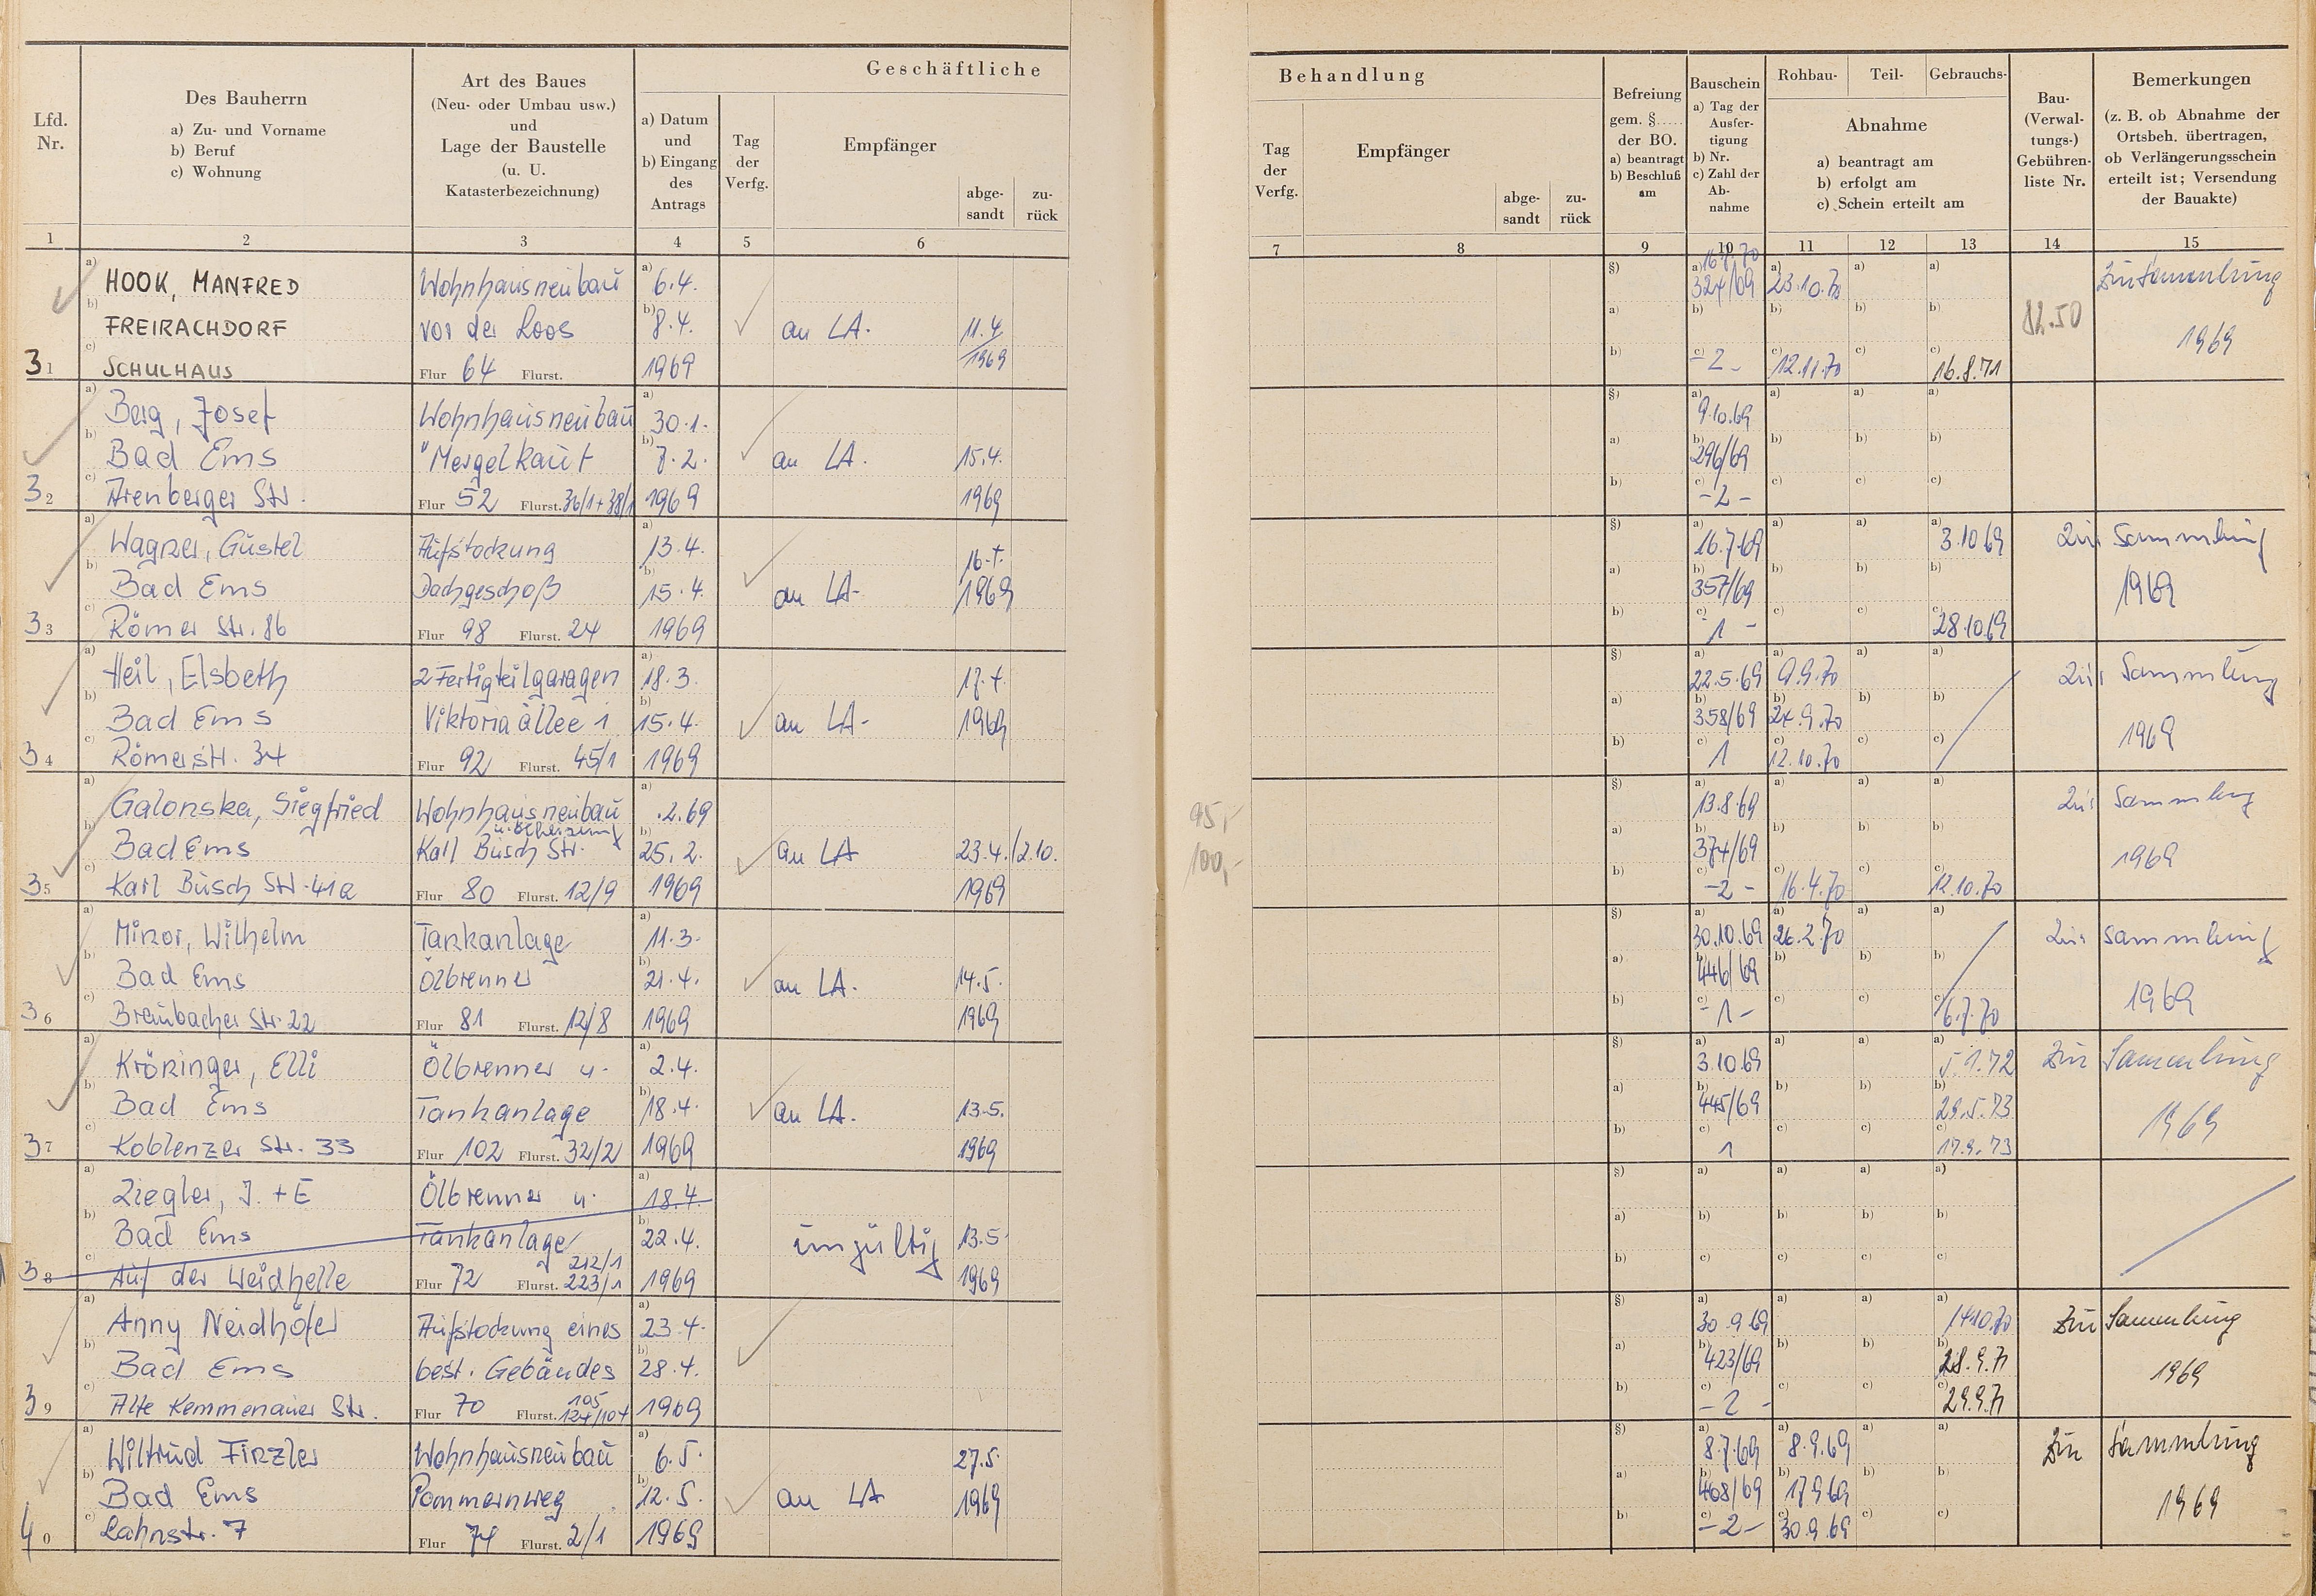 Geschäftliche
Lfd. Nr.
Des Bauherrn
a) Zu- und Vorname
b) Beruf
c) Wohnung
Art des Baues
(Neu- oder Umbau usw.)
und
Lage der Baustelle
(u. U.
Katasterbezeichnung)
a) Datum
und
b) Eingang
des
Antrags
Tag
der
Verfg.
Empfänger
abge-
sandt
zu-
rück
1 2 3 4 5 6
a) HOOK, MANFRED Wohnhausneubau a) 6.4.
b) FREIRACHDORF vor der Loos b) 8.4. an LA. 11.4.
31 c) SCHULHAUS Flur 64 Flurst. 1969 1969
a) Berg, Josef Wohnhausneubau a) 30.1.
b) Bad Ems "Mergelkaut b) 7.2. an LA. 15.4.
32 c) Arenberger Str. Flur 52 Flurst. 36/1+38/1 1969 1969
a) Wagner, Gustel Aufstockung a) 13.4. 16.4.
b) Bad Ems Dachgeschoß b) 15.4. an LA. 1969
33 c) Römer Str. 86 Flur 98 Flurst. 24 1969
a) Heil, Elsbeth 2 Fertigteilgaragen a) 18.3. 17.4.
b) Bad Ems Viktoriaallee 1 b) 15.4. an LA. 1969
34 c) Römerstr. 34 Flur 92 Flurst. 45/1 1969
a) Galonska, Siegfried Wohnhausneubau a) .2.69
u. Ölheizung
b) Bad Ems Karl Busch Str. b) 25.2. an LA 23.4. 2.10.
35 c) Karl Busch Str. 41a Flur 80 Flurst. 12/9 1969 1969
a) Minor, Wilhelm Tankanlage a) 11.3.
b) Bad Ems Ölbrenner b) 21.4. an LA. 14.5.
36 c) Braubacher Str. 22 Flur 81 Flurst. 12/8 1969 1969
a) Kröninger, Elli Ölbrenner u. a) 2.4.
b) Bad Ems Tankanlage b) 18.4. an LA. 13.5.
37 c) Koblenzer Str. 33 Flur 102 Flurst. 32/2 1969 1969
a) Ziegler, J. + E Ölbrenner u. a) 18.4.
b) Bad Ems Tankanlage b) 22.4. ungültig 13.5.
212/1
38 c) Auf der Weidhelle Flur 72 Flurst. 223/1 1969 1969
a) Anny Neidhöfer Aufstockung eines a) 23.4.
b) Bad Ems best. Gebäudes b) 28.4.
105
39 c) Alte Kemmenauer Str. Flur 70 Flurst. 124/104 1969
a) Wiltrud Finzler Wohnhausneubau a) 6.5. 27.5.
b) Bad Ems Pommernweg b) 12.5. an LA 1969
40 c) Lahnstr. 7 Flur 74 Flurst. 2/1 1969
Behandlung
Tag
der
Verfg.
Empfänger
abge-
sandt
zu-
rück
Befreiung
gem. §.....
der BO.
a) beantragt
b) Beschluß
am
Bauschein
a) Tag der
Ausfer-
tigung
b) Nr.
c) Zahl der
Ab-
nahme
Rohbau- Teil- Gebrauchs-
Abnahme
a) beantragt am
b) erfolgt am
c) Schein erteilt am
Bau-
(Verwal-
tungs-)
Gebühren-
liste Nr.
Bemerkungen
(z. B. ob Abnahme der
Ortsbeh. übertragen,
ob Verlängerungsschein
erteilt ist; Versendung
der Bauakte)
7 8 9 10 11 12 13 14 15
§) a) 324/69 a) 23.10.70 a) a) Zur Sammlung
a) b) b) b) b) 82.50 1969
b) c) -2- c) 12.11.70 c) c) 16.8.71
§) a) 9.10.69 a) a) a)
a) b) 296/69 b) b) b)
b) c) -2- c) c) c)
§) a) 16.7.69 a) a) a) 3.10.69 Zur Sammlung
a) b) 357/69 b) b) b) 1969
b) c) 1 - c) c) c) 28.10.69
§) a) 22.5.69 a) 9.9.70 a) a) Zur Sammlung
a) b) 358/69 b) 24.9.70 b) b) 1969
b) c) 1 c) 12.10.70 c) c)
95,- §) a) 13.8.69 a) a) a) Zur Sammlung
100,- a) b) 374/69 b) b) b) 1969
b) c) -2- c) 16.4.70 c) c) 12.10.70
§) a) 30.10.69 a) 26.2.70 a) a) Zur Sammlung
a) b) 446/69 b) b) b) 1969
b) c) -1- c) c) c) 6.7.70
§) a) 3.10.69 a) a) a) 5.1.72 Zur Sammlung
a) b) 445/69 b) b) b) 29.5.73 1969
b) c) 1 c) c) c) 17.9.73
§) a) a) a) a)
a) b) b) b) b)
b) c) c) c) c)
§) a) 30.9.69 a) a) a) 14.10.70 Zur Sammlung
a) b) 423/69 b) b) b) 28.9.71 1969
b) c) -2- c) c) c) 29.9.71
§) a) 8.7.69 a) 8.9.69 a) a) Zur Sammlung
a) b) 408/69 b) 17.9.69 b) b) 1969
b) c) -2- c) 30.9.69 c) c)